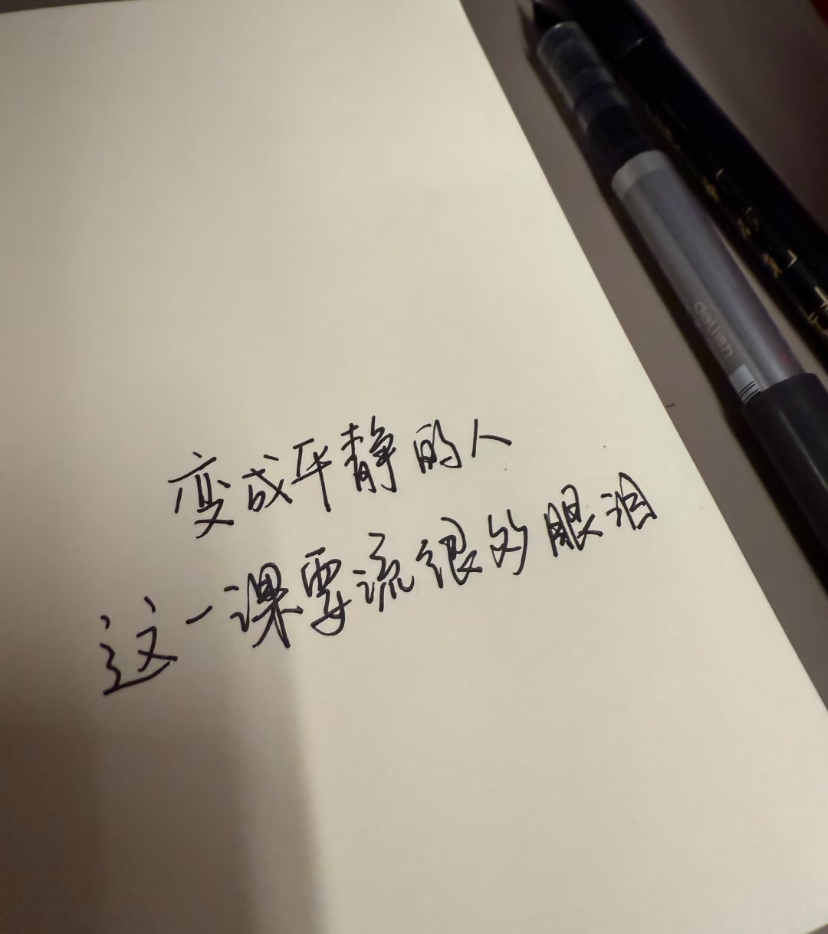 变成平静的人
这一课要流很多眼泪